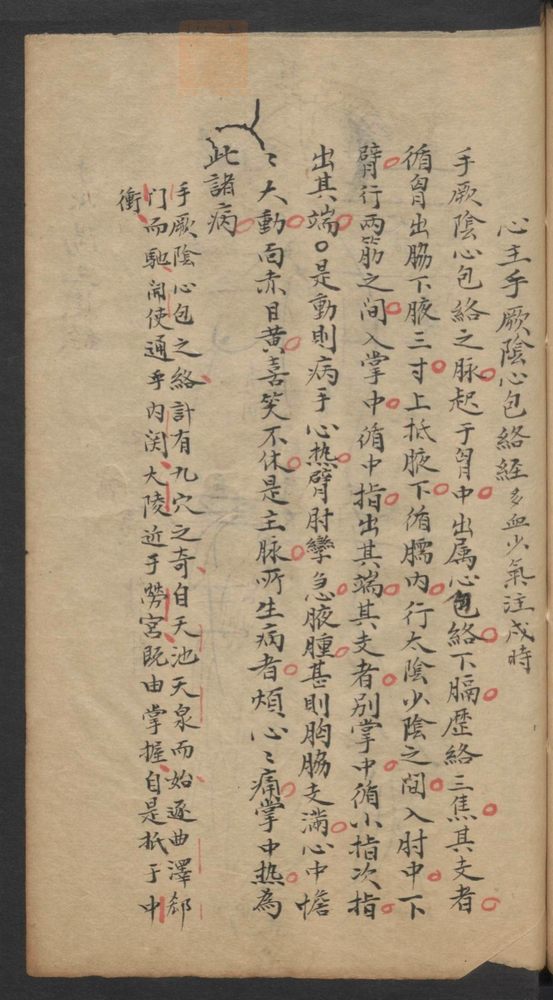 心主手厥陰心包絡經多血少氣注戌時
手厥陰心包絡之脉起于胷中出属心包絡下膈歷絡三焦其支者
循胷出脇下腋三寸上抵腋下循臑内行太陰少陰之間入肘中下
臂行兩筋之间入掌中循中指出其端其支者別掌中循小指次指
出其端○是動則病手心热臂肘攣急腋腫甚則胸脇支满心中憺
〻大動面赤目黄喜笑不休是主脉所生病者煩心〻痛掌中热為
此諸病
手厥陰心包之絡計有九穴之奇自天池天泉而始逐曲澤郄
门而馳间使通乎内関大陵近于勞宮既由掌握自是抵于中
衝